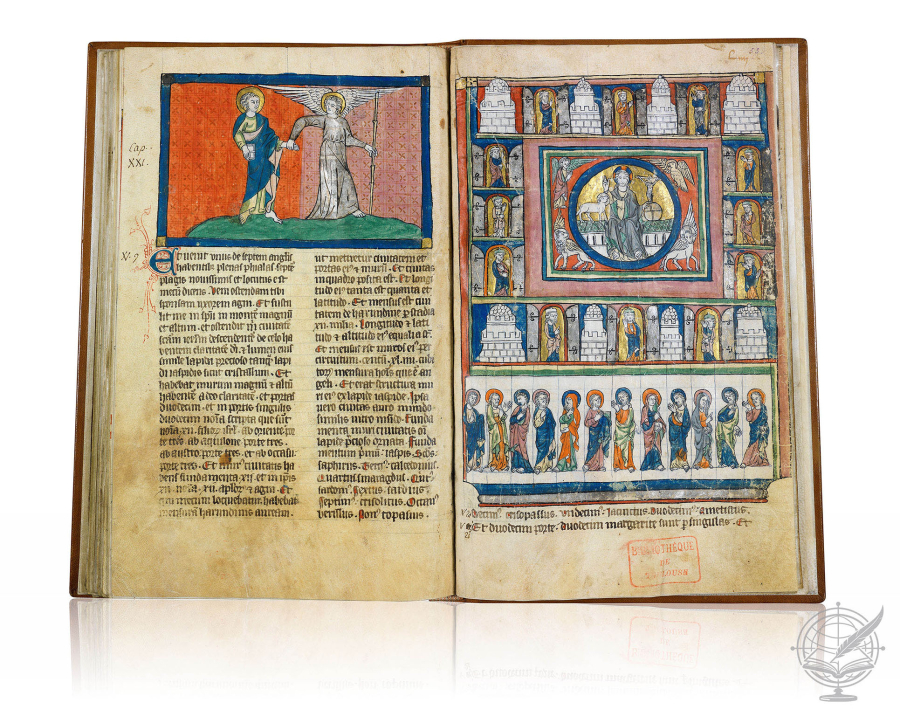 Cap.
XXI.
V. 9
Et venit unus de septem anglis
habentib; plenas phialas septē
plagis novissimis et locutus est
mecū dicens. Veni ostendam tibi
sponsam uxorem agni. Et sustu
lit me in spū in monte magnū
et altum. et ostendit m civitatē
scām ierlm descendentē de celo ha
bentem claritatē di. & lumen eius
simile lapidi precioso tanq lapi
di iaspidis sicut cristallum. Et
habebat murum magnū & altū
habentē a deo claritatē. et portas
duodecim. et in portis singulis
duodecim noīa scripta que sunt
noīa. xii. filior isrl. ab oriente por
te tres. ab aquilone porte tres.
ab austro. porte tres. et ab occasu
porte tres. Et civitatis ha
bens fundamenta. xii. et in ipis
xii. xii. aplor & agni. Et
qui mecum loquebatur. habebat
mensuram harundinis auream.
ut metiretur civitatem et
portas ei & murū. Et civitas
in quadro posita est. & longi
tudo ei tanta est quanta et
latitudo. Et mensus est civi
tatem de harundine p stadia
xii. milia. Longitudo & lati
tudo & altitudo ei equalia st.
Et mensus est muros ei per
circuitum. centū. xl. iiii. cubi
tor mensura hois que ē an
geli. Et erat structura mu
ri ei ex lapide iaspide. Ipsa
vero civitas auro mundo
similis vitro mūdo. Funda
menta muri civitatis oī
lapide pcioso ornata. Funda
mentum primū. iaspis. Scds.
saphirus. Terti. calcedonius.
Quartus smaragdus. Quīt
sardonix. Sextus. sardius.
Septim. crisolitus. Octau
berillus. Non topasius.
crisopassus. undecim. iacinctus. duodecim. ametistus.
Et duodecim porte. duodecim margarite sunt p singulas. Et
BIBLIOTHÈQUE
DE